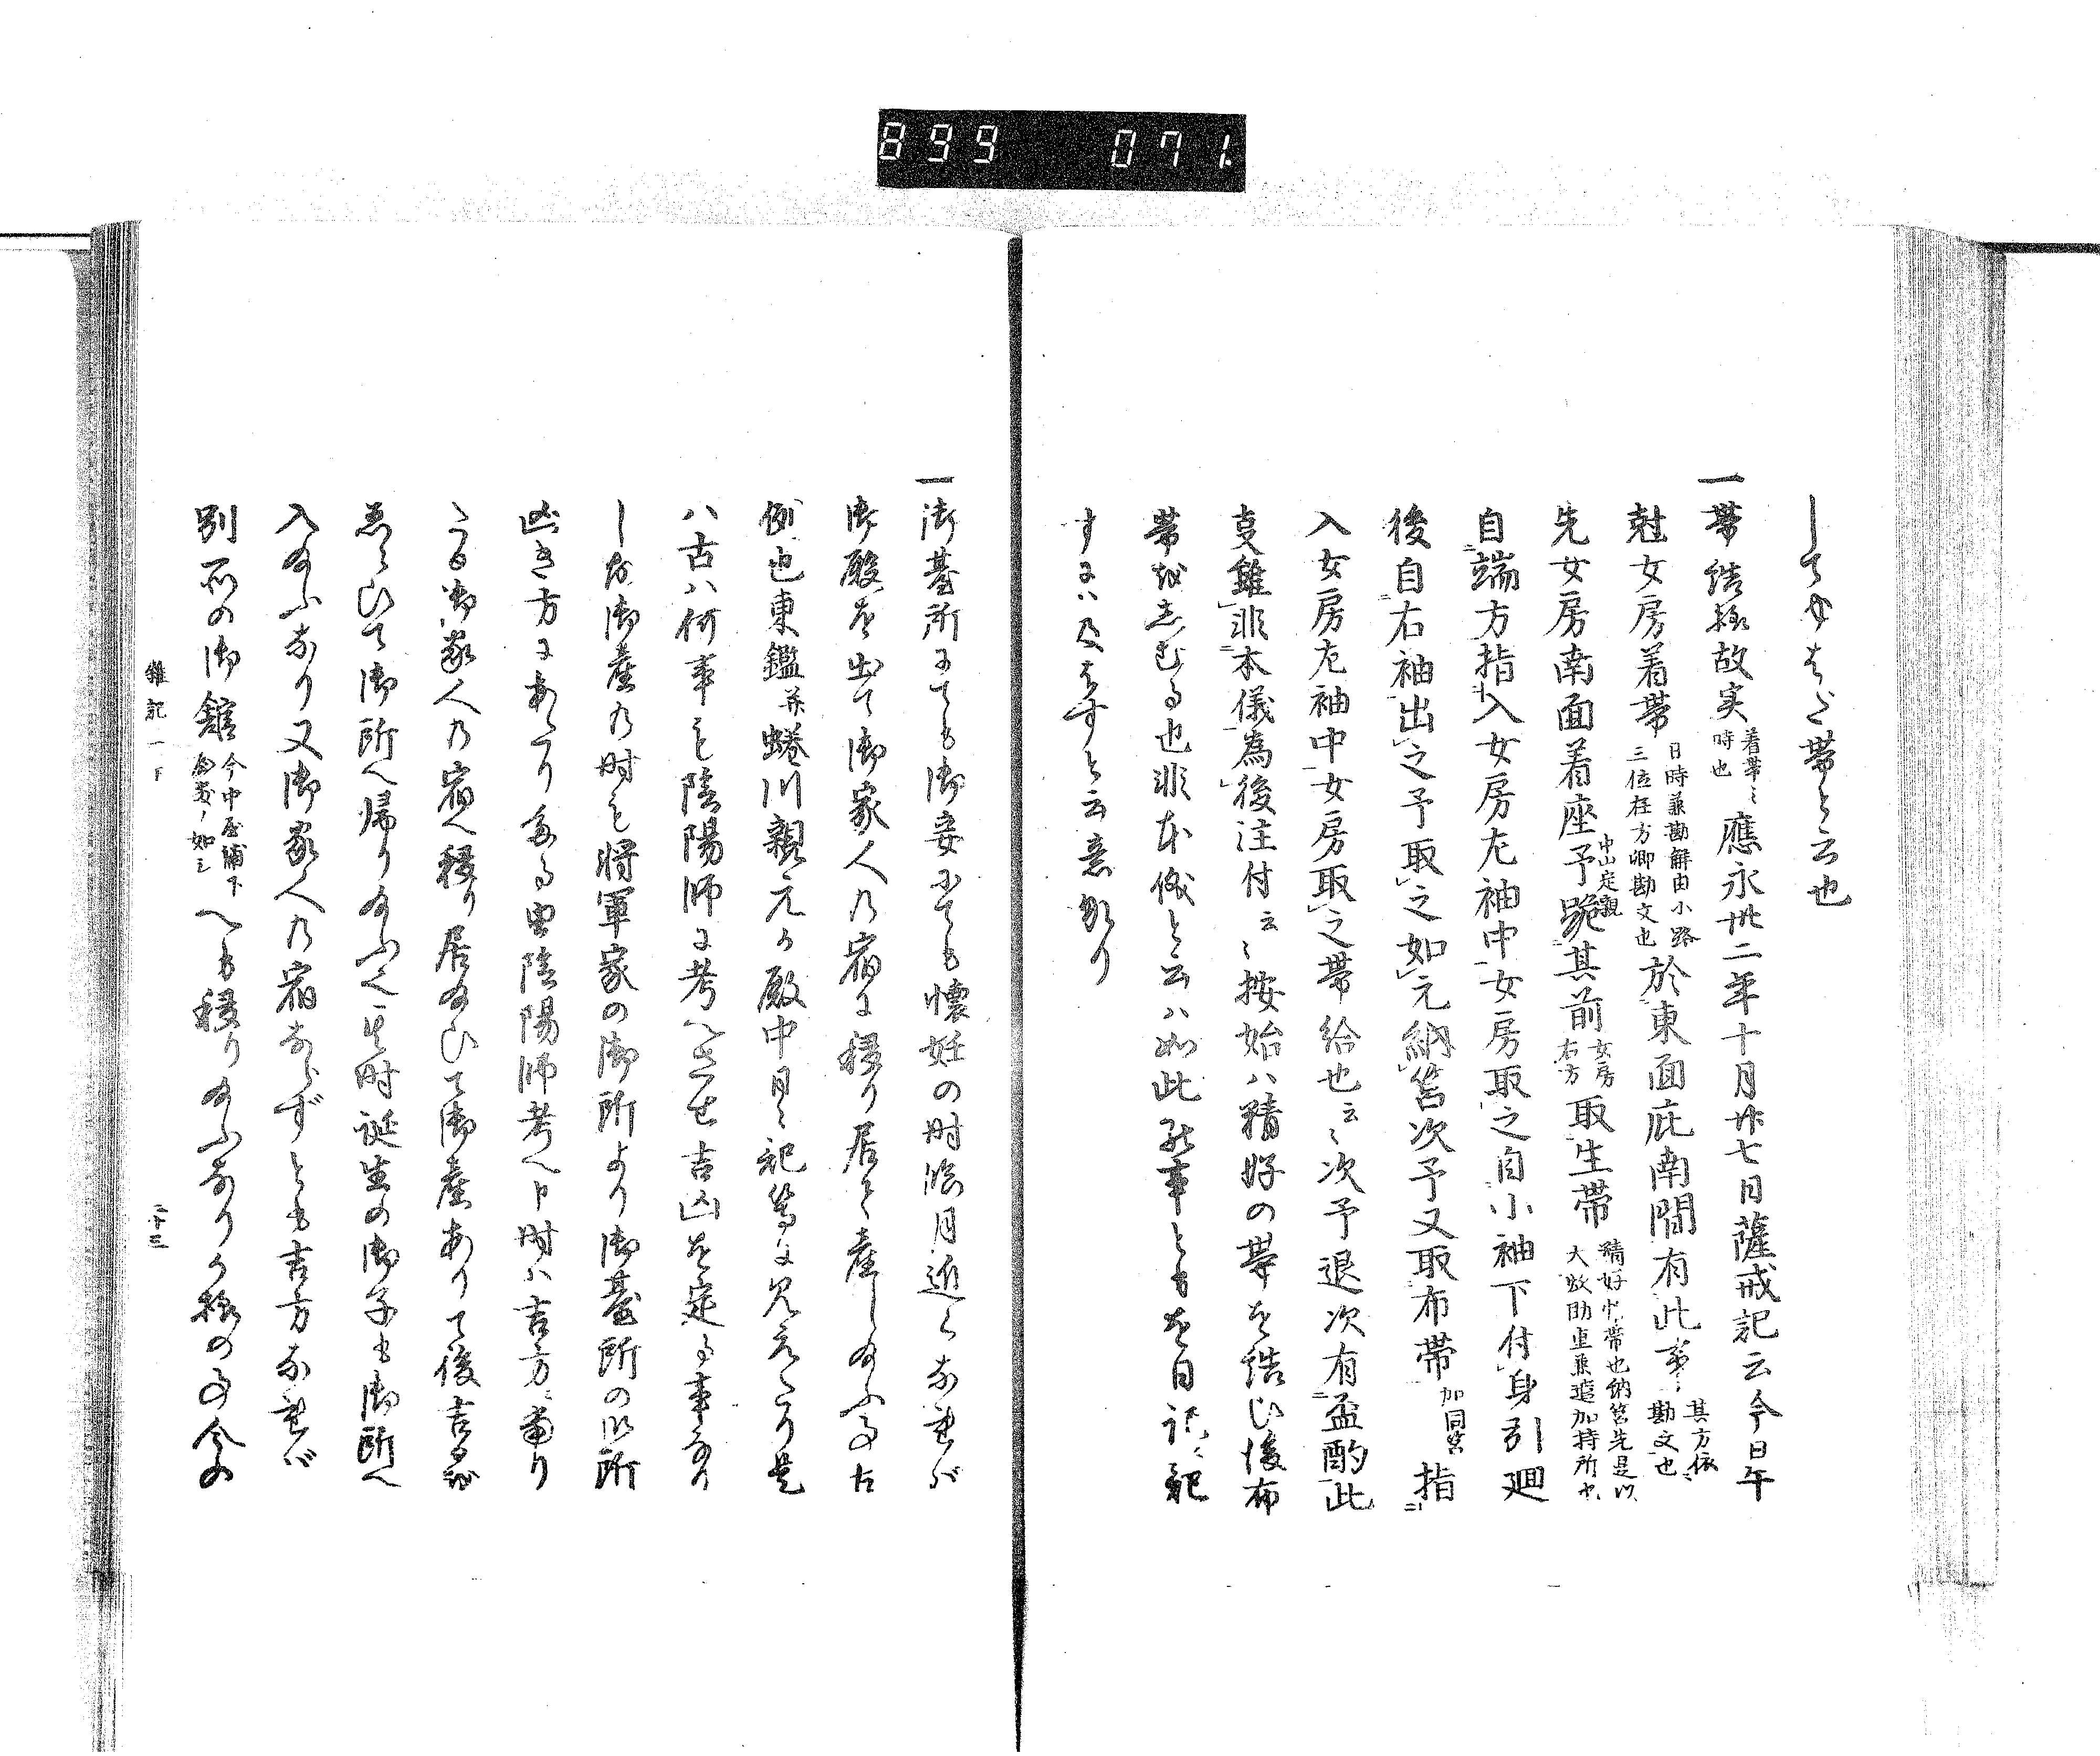 899 071
してゆはた帯と云也
一帯結様故実 着帯之時也 應永卅二年十月廿七日薩戒記云今日午
尅女房着帯 日時兼勘解由小路三位在方卿勘文也 於東面庇南間有此事 其方依勘文也
先女房南面着座予 中山定親 跪其前 女房右方 取生帯 精好 帯也納筥先是以 遣加持所
自端方指入女房左袖中女房取之自小袖下付身引廻
後自右袖出之予取之如元納筥次予又取布帯 加同筥 指
入女房左袖中女房取之帯給也云々次予退次有盃酌此
事雖非本儀為後注付云々按始ハ精好の帯を結ひ後布
帯を志むる也非本儀と云ハ如此 事ともを日記に記
すにハ及はすと云意なり
一御臺所にても御妾にても懐妊の時臨月近くなれば
御殿を出て御家人の宿に移り居て産し給ふ事古
例也東鑑并蜷川親元か殿中日々記等に見えたり是
ハ古ハ何事も陰陽師に考へさせ吉凶を定る事なり
しか御産の時も将軍家の御所より御臺所の御所
凶き方にあたりたる由陰陽師考へ申時ハ吉方に當り
たる御家人の宿へ移り居給ひて御産ありて後吉日を
ゑらひて御所へ帰り給ふ也其時誕生の御子も御所へ
入給ふなり又御家人の宿ならずとも吉方なれば
別所の御舘 今 へも移り給ふなりか様の事今の
雜記一下
二十三